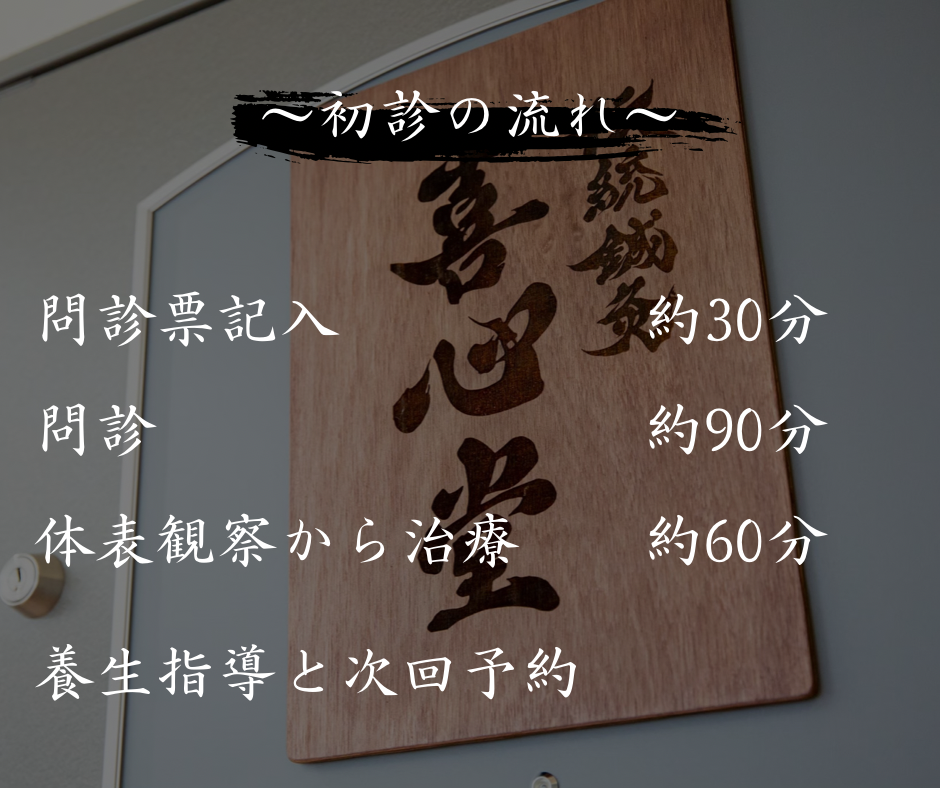 ～初診の流れ～
問診票記入 約30分
問診 約90分
体表観察から治療 約60分
養生指導と次回予約
統鍼灸
喜心堂